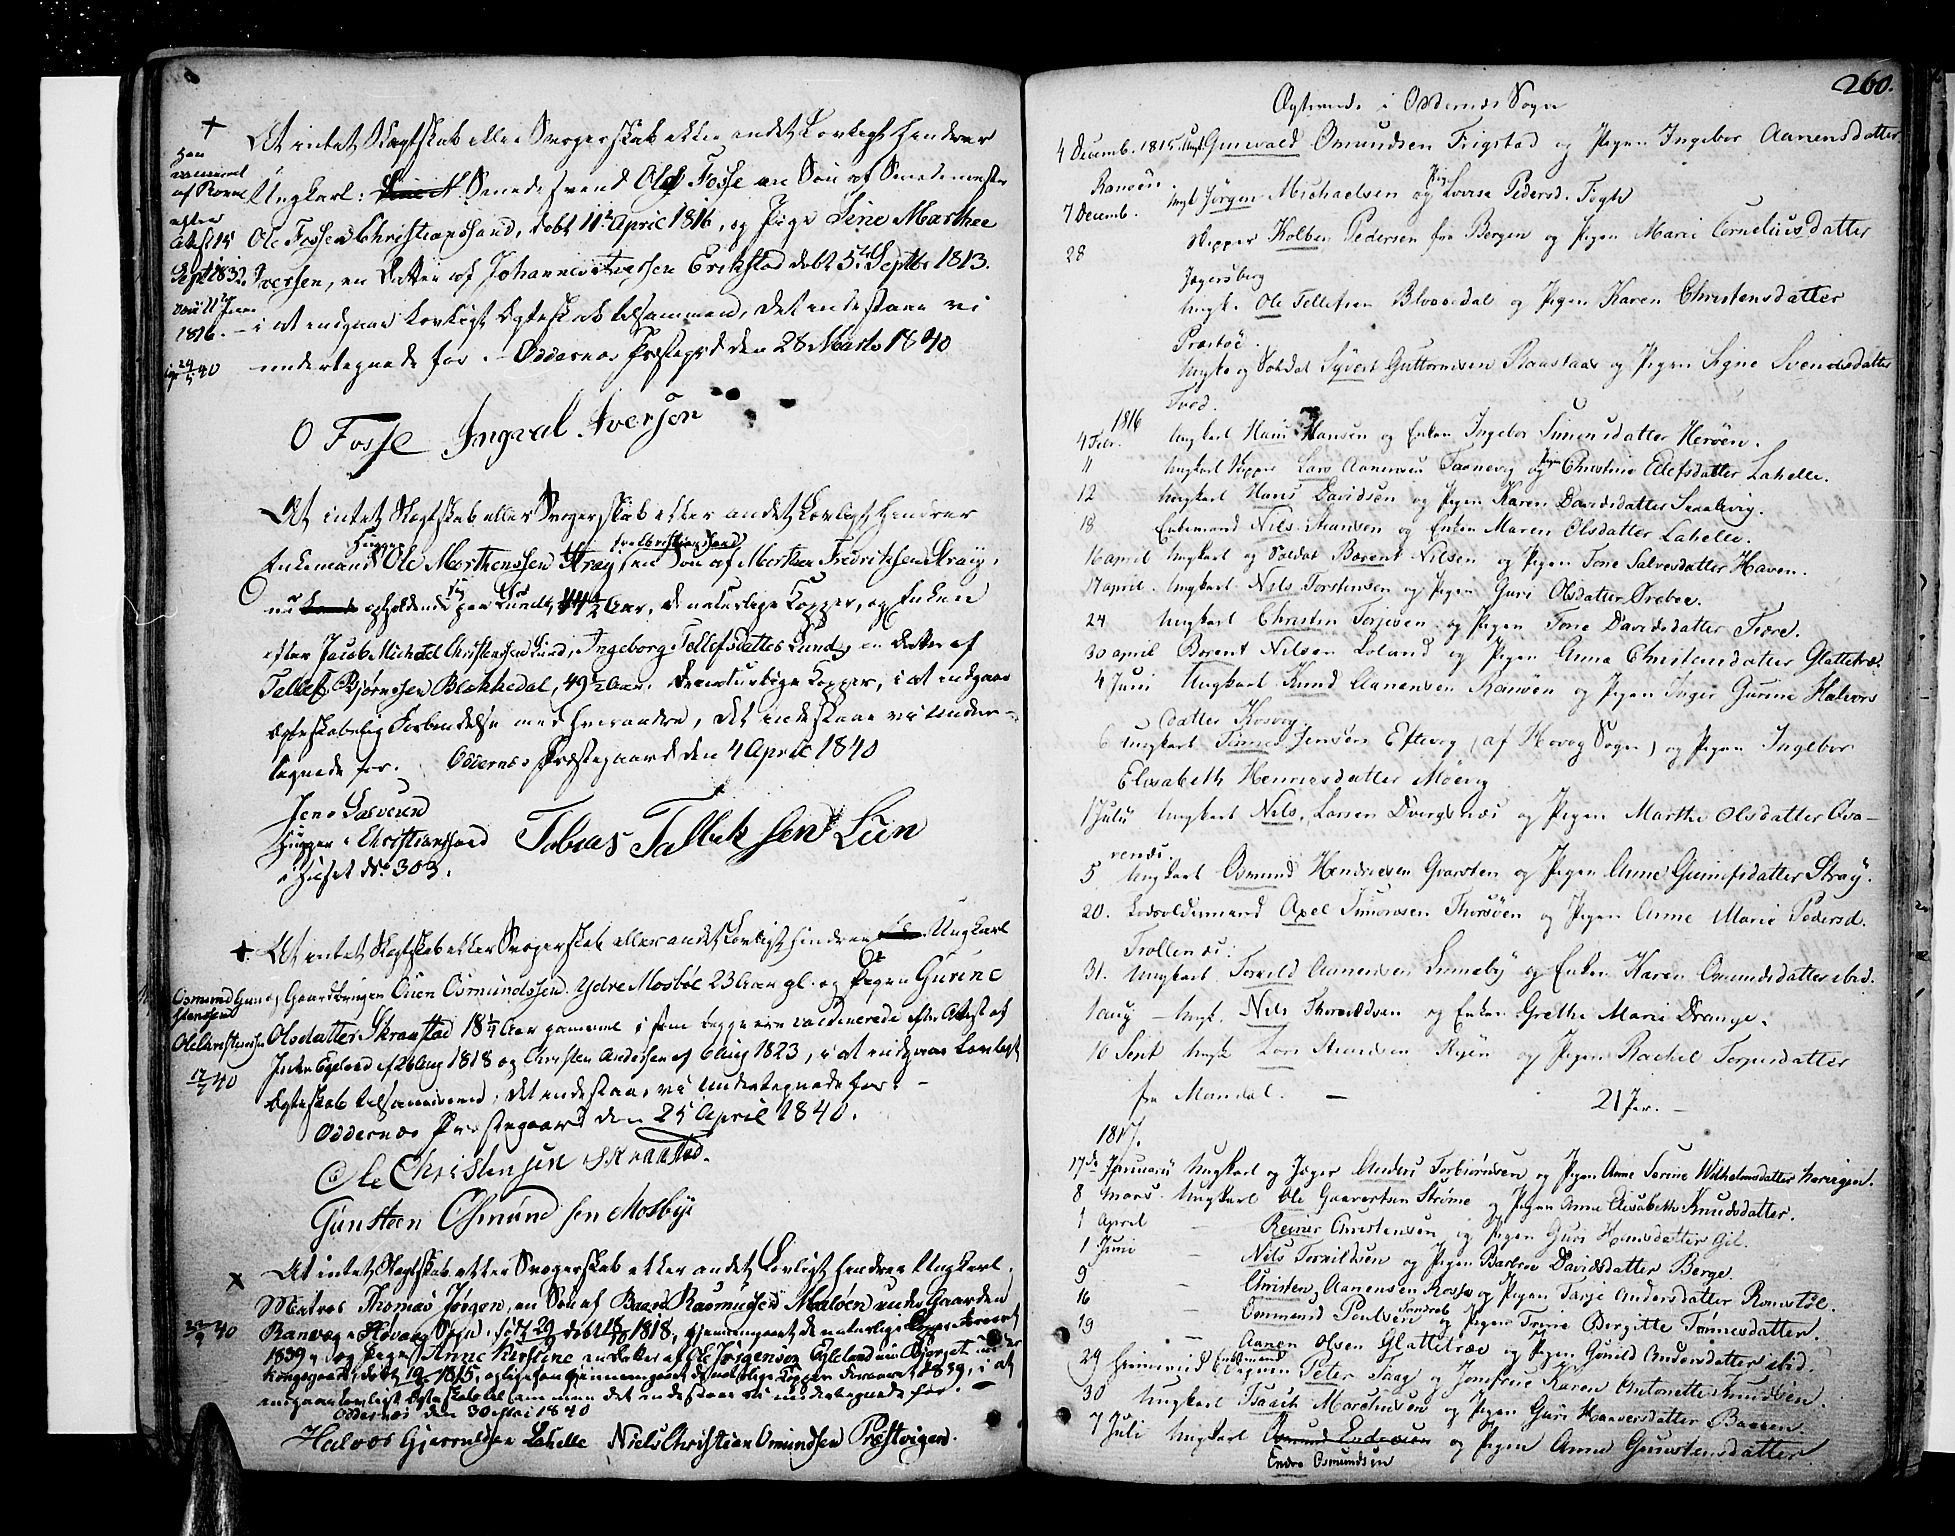 +
At intet Slegtskab eller Svogerskab eller andet Lovligt hindrer
Han
vaccineret
af Rosen
efter
Attest 15
Sept 1832.
Ungkarl: Smedesvend Ole Fosse en Søn af Smedemester
Ole Fossen Christianssand, døbt 11te April 1816, og Pige Sine Marthee
Iversen, en Datter af Johannes Iversen Erikstad døbt 5te Septbr 1813.
1816.
i at indgaae Lovligt Ægteskab tilsammen, det indestaae vi
undertegnede for. – Oddernes Præstegrd den 28 Marts 1840
O Fosse Ingval Iversen
At intet Slegtskab eller Svogerskab eller andet Lovligt hindrer
Enkemand Ole Morthenssen Stray, en Søn af Morthen Fredriksen Stray,
nu opholdende Lund, 44½ Aar, De naturlige Kopper, og Enken
efter Jacob Michael Christensen Lund, Ingeborg Tellefsdatter Lund, en Datter af
Tellef Bjørnsen Blokkedal, 49½ Aar. De naturlige Kopper, i at indgaae
Ægteskabelig Forbindelse med hverandre, det indestaae vi Under-
tegnede for. Oddernes Præstegaard den 4 April 1840
Jens
i Christianssand
i Huset No 303.
Tobias Tallak sen Lun
+ At intet Slegtskab eller Svogerskab eller andet Lovligt hindrer Ungkarl
og Gaardbruger Ouen Osmundssen Ydre Mosbøe 23 Aar gl. og Pigen Gurine
Olsdatter Skraastad 18¼ Aar gammel, som begge ere vaccinerede efter Attest af
Egeland af 26 Aug 1818 og Christen Andersen af 6 Aug 1823, i at indgaae Lovligt
Ægteskab tilsammen, det indestaae vi Undertegnede for. –
Oddernes Præstegaard den 25 April 1840.
Ole Christensen Skraastad.
Gunsteen Osmund sen Mosbye
x At intet Slegtskab eller Svogerskab eller andet Lovligt hindrer Ungkarl.
Matros Thomas Jørgen, en Søn af Baars Rasmussen Maløen under Gaarden
Ranvig i Høvaag Sogn, født 29 døbt 1818, gjennemgaaet de naturlige Kopper
1839, og Pige Anne Kirstine en Datter af Ole Jørgensen Egeland
Kongsgaard, døbt 1815, og ligesaa gjennemgaaet de naturlige Kopper 1839, i at
indgaae Lovligt Ægteskab tilsammen det indestaae vi undertegnede for. –
Oddernes den 30 Mai 1840
Halvor Gjerruldsen Lahelle Niels Christian Omundsen Præstvigen.
260.
Ægteviede i Oddernes Sogn
4 Decemb. 1815. Ungk. Gunvald Omundsen Frigstad og Pigen Ingebor Aanensdatter
Ranøen.
7 Decemb. Ungk Jørgen Michaelsen og Pig. Lovise Pedersd. Fogh
28 Skipper Kolben Pedersen fra Bergen og Pigen Marie Corneliusdatter
Jægersberg
Ungk. Ole Tellefsen Blokkedal og Pigen Karen Christensdatter
Præstøe.
Ungk og Soldat Syvert Guttormsen Raastaas og Pigen Signe Svendsdatter
Tved.
1816
4 Febr. Ungkarl Hans Hansen og Enken Ingebor Simensdatter Herøen.
11 Ungkarl Skipper Lars Aanensen Faanevig og Pigen Christine Ellefsdatter Lahelle.
12 Ungkarl Hans Davidsen og Pigen Karen Davidsdatter
18 Enkemand Nils Knudsen og Enken Maren Olsdatter Lahelle.
16 april Ungkarl og Soldat Bærent Nilsen og Pigen Tone Salvesdatter Haven.
17 april. Ungkarl Nils Torstensen og Pigen Guri Olsdatter Ørebec.
24 Ungkarl Christen Torjesen og Pigen Tone Davidsdatter Fiære.
30 april Berent Nilsen Loland og Pigen Anna Christensdatter Glattetræ.
4 Juni Ungkarl Knud Aanensen Ranøen og Pigen Inger Gurine Halvors
datter Kosvig.
6 Ungkarl Tønnes Jensen Eftevig (af Høvog Sogn) og Pigen Ingebor
Elisabeth Henrichsdatter Møevig
1 Julii Ungkarl Nils Larsen Dvergsnæs og Pigen Marthe Olsdatter Qva-
renæs.
5 Ungkarl Osmund Hendricsen Qvarsten og Pigen Anne Gunufsdatter Stray.
20. Axel Simonsen Thorsøen og Pigen Anne Marie Pedersd.
Trollenæs.
31. Ungkarl Torkild Aanensen Linneby og Enken Karen Omundsdatter ibid.
1 aug – Ungk. Nils Thorkildsen og Enken Grethe Marie Drange.
10 Sept Ungk Lars Knudsen Ryen og Pigen Rachel Torjusdatter
fra Mandal. – 21 Par. –
1817.
17de Januarii Ungkarl og Jæger Anders Torbiørnsen og Pigen Anne Serine Wilhelmsdatter
8 Mars. Ungkarl Ole Gaavertsen Strømme og Pigen Anne Elisabeth Knudsdatter.
1 April – Reiner Christensen og Pigen Guri Hansdatter Gil.
1 Juni – Nils Torkildsen og Pigen Barbro Davidsdatter Berge.
9 – Christen Aanensen Rosse og Pigen Tarje Andersdatter Romstøl.
16 – Ommund Poulsen Sandrab og Pigen Trine Bergitte Tønnesdatter.
19 – Aanen Olsen Glattetræe og Pigen Gunild Andersdatter ibid.
29 Enkemand Peter Faag og Jomfrue Karen Antonette Knudsen.
30 Ungkarl Isaach Mortensen og Pigen Guri Haaversdatter Baanen.
7 Juli Ungkarl Osmund Endresen og Pigen Anne Gunstensdatter.
Endre Osmundsen